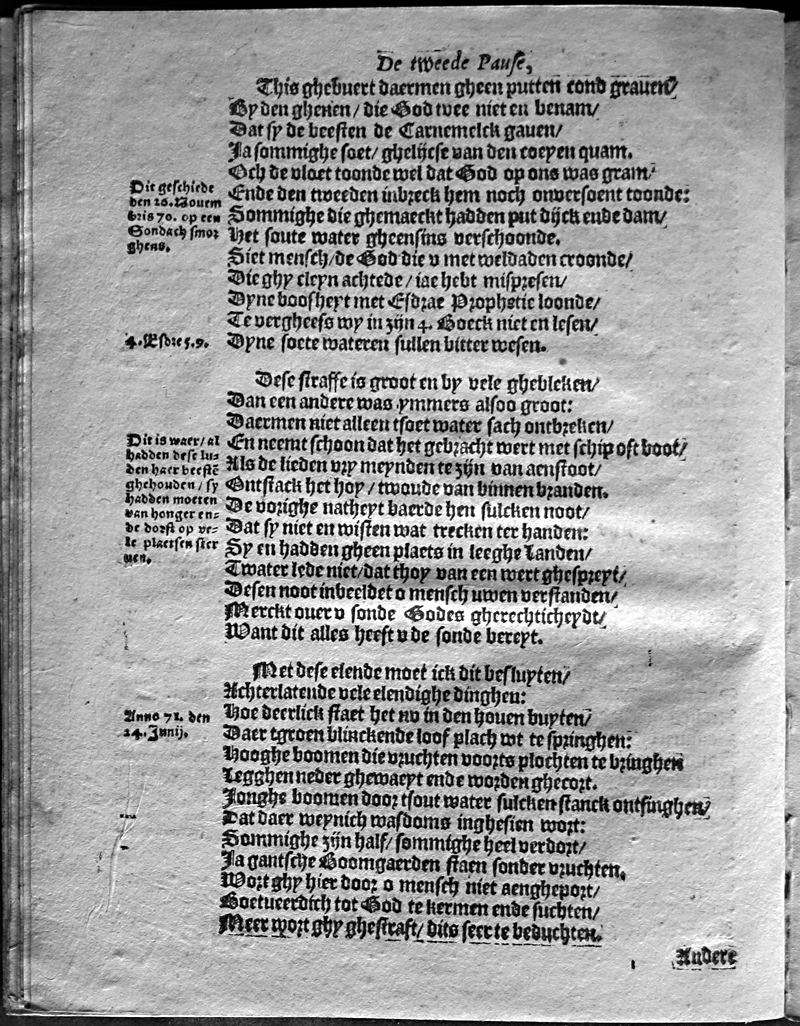 De tweede Pause,
This ghebuert daermen gheen putten cond grauen/
By den ghenen / die God twee niet en benam/
Dat sy de beesten de Carnemelck gauen/
Ja sommighe soet / ghelijcse van den coeyen quam.
Och de vloet toonde wel dat God op ons was gram/
Ende den tweeden inbreck hem noch onversoent toonde:
Sommighe die ghemaeckt hadden put dijck ende dam/
Het soute water gheensins verschoonde.
Siet mensch / de God die v met weldaden croonde/
Die ghy cleyn achtede / iae hebt mispresen/
Dyne boosheyt met Esdrae Prophetie loonde/
Te vergheefs wy in zijn 4. Boeck niet en lesen/
Dyne soete wateren sullen bitter wesen.
Dit geschiede
den 26. Nouem
bris 70. op een
Sondach smor
ghens.
4. Esdre 5.9.
Dese straffe is groot en by vele ghebleken/
Dan een andere was ymmers alsoo groot:
Daermen niet alleen tsoet water sach ontbreken/
En neemt schoon dat het gebracht wert met schip oft boot/
Als de lieden vry meynden te zijn van aenstoot/
Ontstack het hoy / twoude van binnen branden.
De vorighe natheyt baerde hen sulcken noot/
Dat sy niet en wisten wat trecken ter handen:
Sy en hadden gheen plaets in leeghe Landen/
Twater lede niet / dat thoy van een wert ghespreyt/
Desen noot inbeeldet o mensch uwen verstanden/
Merckt ouer v sonde Godes gherechticheydt/
Want dit alles heeft v de sonde bereyt.
Dit is waer / al
hadden dese lu-
den haer beestē
ghehouden / sy
hadden moeten
van honger en-
de dorst op ve-
le plaetsen ster
uen.
Met dese elende moet ick dit besluyten/
Achterlatende vele elendighe dinghen:
Hoe deerlick staet het nv in den houen buyten/
Daer tgroen blinckende loof plach wt te springhen:
Hooghe boomen die vruchten voorts plochten te bringhen
Legghen neder ghewaeyt ende worden ghecort.
Jonghe boomen door tsout water sulcken stanck ontfinghen/
Dat daer weynich wasdoms inghesien wort:
Sommighe zijn half / sommighe heel verdort/
Ja gantsche Boomgaerden staen sonder vruchten.
Wort ghy hier door o mensch niet aengheport/
Boetueerdich tot God te kermen ende suchten/
Meer wort ghy ghestraft / dits seer te beduchten.
Anno 71. den
24. Junij.
Andere